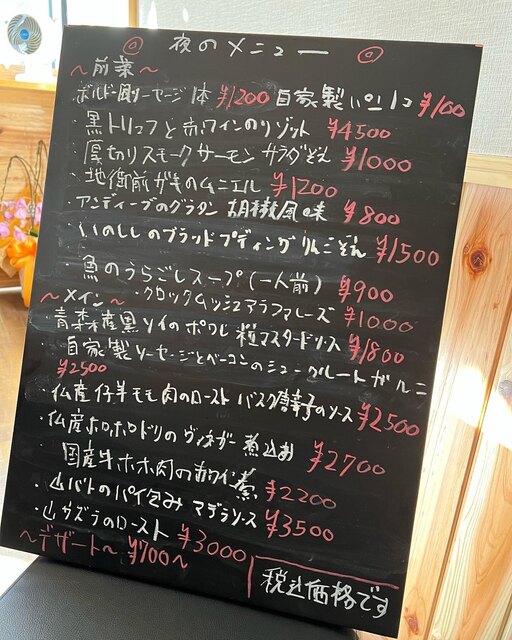 夜のメニュー
〜前菜〜
ボルドー風ソーセージ1本 ¥1200 自家製パン1コ ¥100
・黒トリュフと赤ワインのリゾット ¥4500
厚切りスモークサーモン サラダぞえ ¥1000
・地御前ガキのムニエル ¥1200
・アンディーブのグラタン 胡椒風味 ¥800
・いのししのブラッドプディングりんごぞえ ¥1500
・魚のうらごしスープ(一人前) ¥900
・クロックムッシュアラファレーズ ¥1000
〜メイン〜
・青森産黒ソイのポワレ 粒マスタードソース ¥1800
自家製ソーセージとベーコンのシュークルートガルニ
¥2500
・仏産仔羊モモ肉のロースト バスク唐辛子のソース ¥2500
・仏産ホロホロドリのヴィネガー煮込み ¥2700
・国産牛ホホ肉の赤ワイン煮 ¥2200
・山バトのパイ包み マデラソース ¥3500
・山ウズラのロースト ¥3000
〜デザート〜 ¥700〜
税込価格です